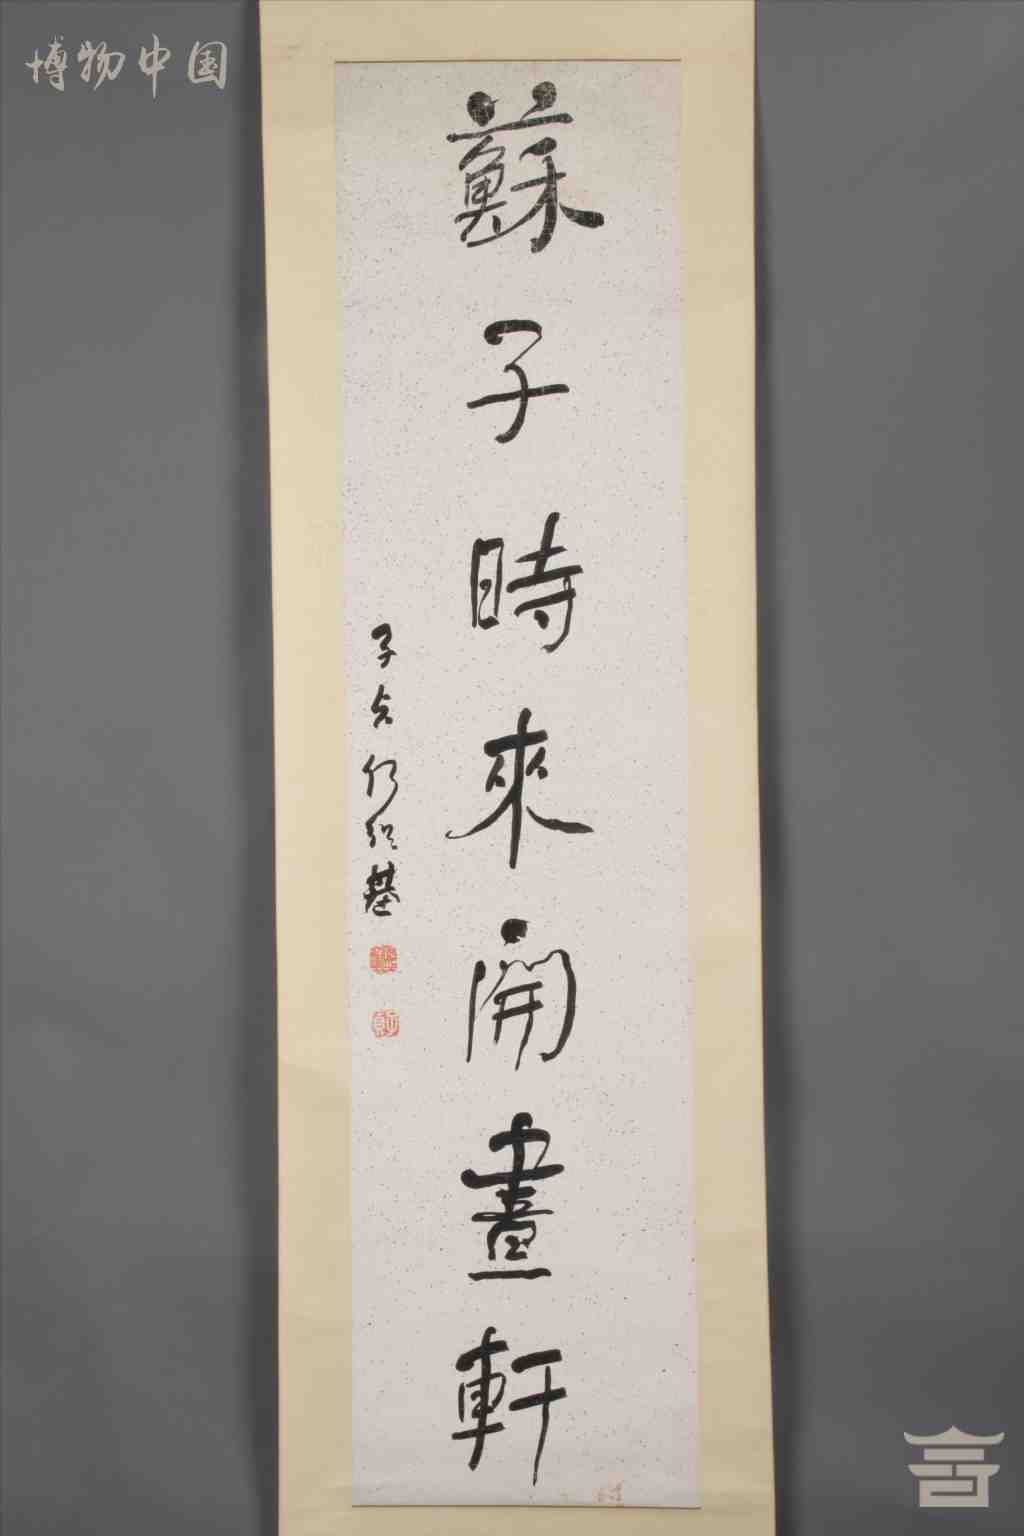 博物中国
蘇子時來開畫軒
子貞何紹基